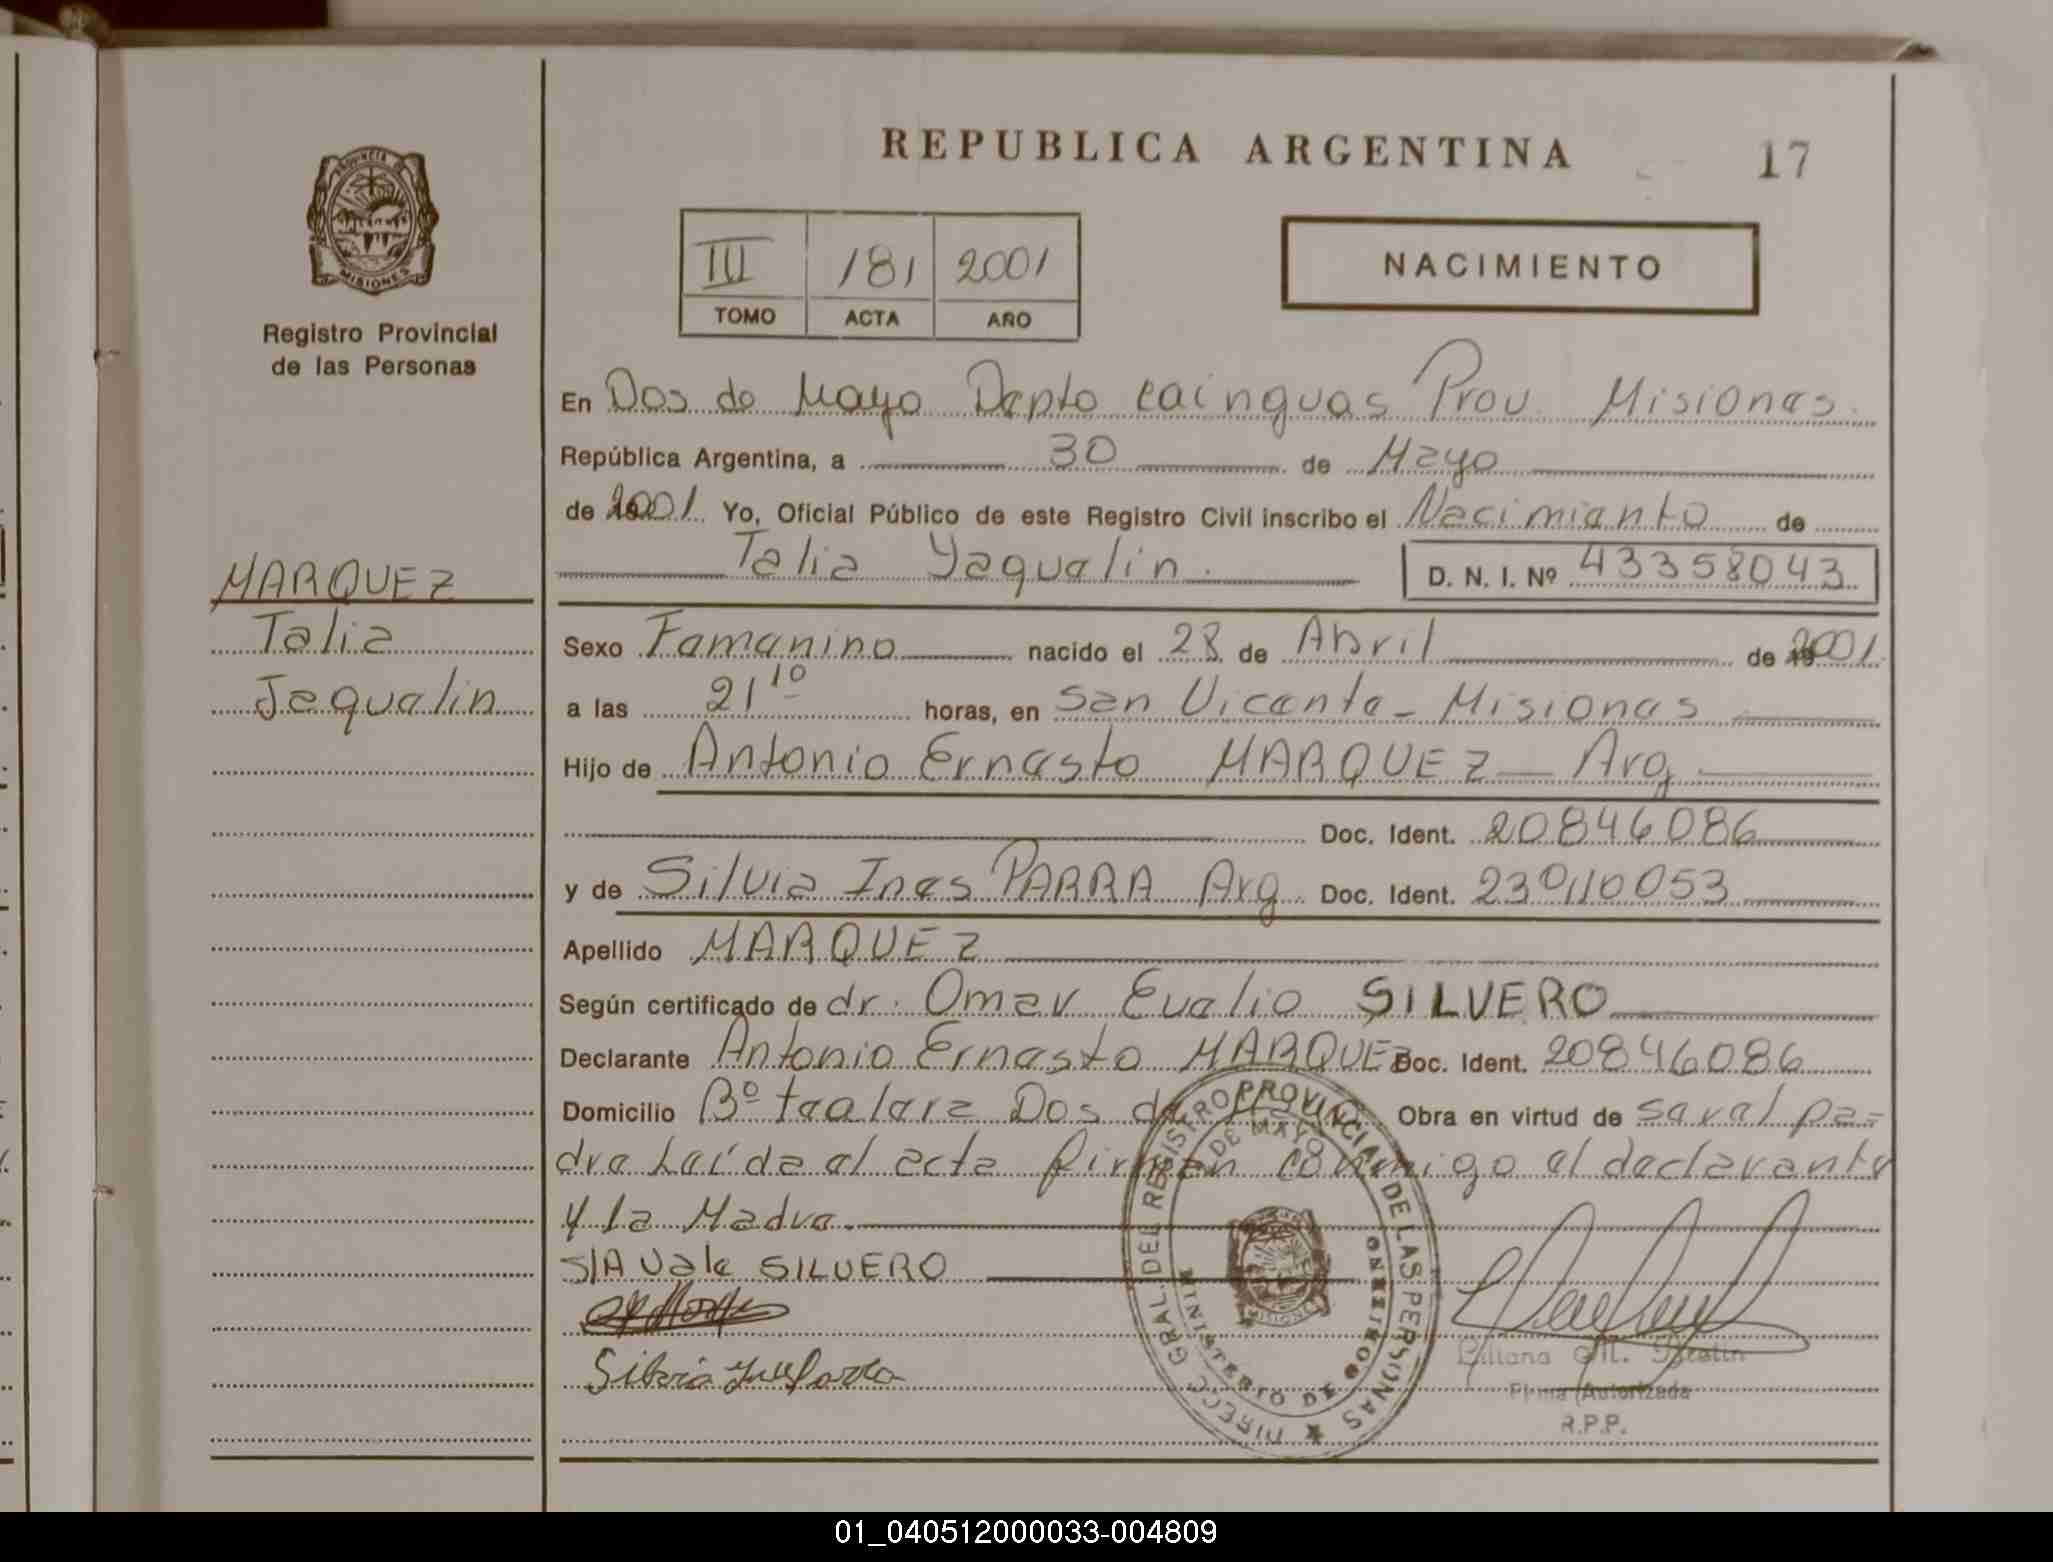 REPUBLICA ARGENTINA
17
PROVINCIA DE
MISIONES
Registro Provincial
de las Personas
III 181 2001
TOMO ACTA AÑO
NACIMIENTO
En Dos de Mayo Depto Cainguas Prov. Misiones.
República Argentina, a 30 de Mayo
de 2001 Yo, Oficial Público de este Registro Civil inscribo el Nacimiento de
Talia Yaquelin.
D. N. I. Nº 43358043
MARQUEZ
Talia
Jaquelin
Sexo Femenino nacido el 28 de Abril de 2001
a las 21 10 horas, en San Vicente - Misiones
Hijo de Antonio Ernesto MARQUEZ Arg
Doc. Ident. 20846086
y de Silvia Ines PARRA Arg Doc. Ident.
Apellido MARQUEZ
Según certificado de dr. Omar Evelio SILVERO
Declarante Antonio Ernesto MARQUEZ Doc. Ident. 20846086
Domicilio Bº Dos de Obra en virtud de ser el pa=
dre Leída el acta firman conmigo el declarante
y la Madre.
S/A Vale SILVERO
DIRECC. GRAL. DEL REGISTRO PROVINCIAL DE LAS PERSONAS
2 DE MAYO
MINISTERIO DE GOBIERNO
Firma Autorizada
R.P.P.
01_040512000033-004809